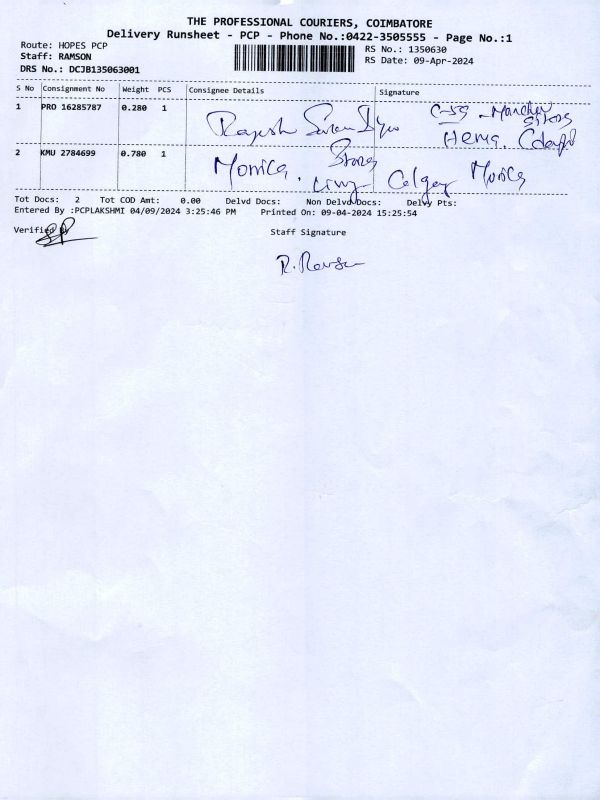 THE PROFESSIONAL COURIERS, COIMBATORE
Delivery Runsheet - PCP - Phone No.:0422-3505555 - Page No.:1
Route: HOPES PCP
Staff: RAMSON
DRS No.: DCJB135063001
RS No.: 1350630
RS Date: 09-Apr-2024
S No Consignment No Weight PCS Consignee Details Signature
1 PRO 16285787 0.280 1 Rajesh
Hema.
2 KMU 2784699 0.780 1 Monica. Monica
Tot Docs: 2 Tot COD Amt: 0.00 Delvd Docs: Non Delvd Docs: Delvy Pts:
Entered By :PCPLAKSHMI 04/09/2024 3:25:46 PM Printed On: 09-04-2024 15:25:54
Verified By
Staff Signature